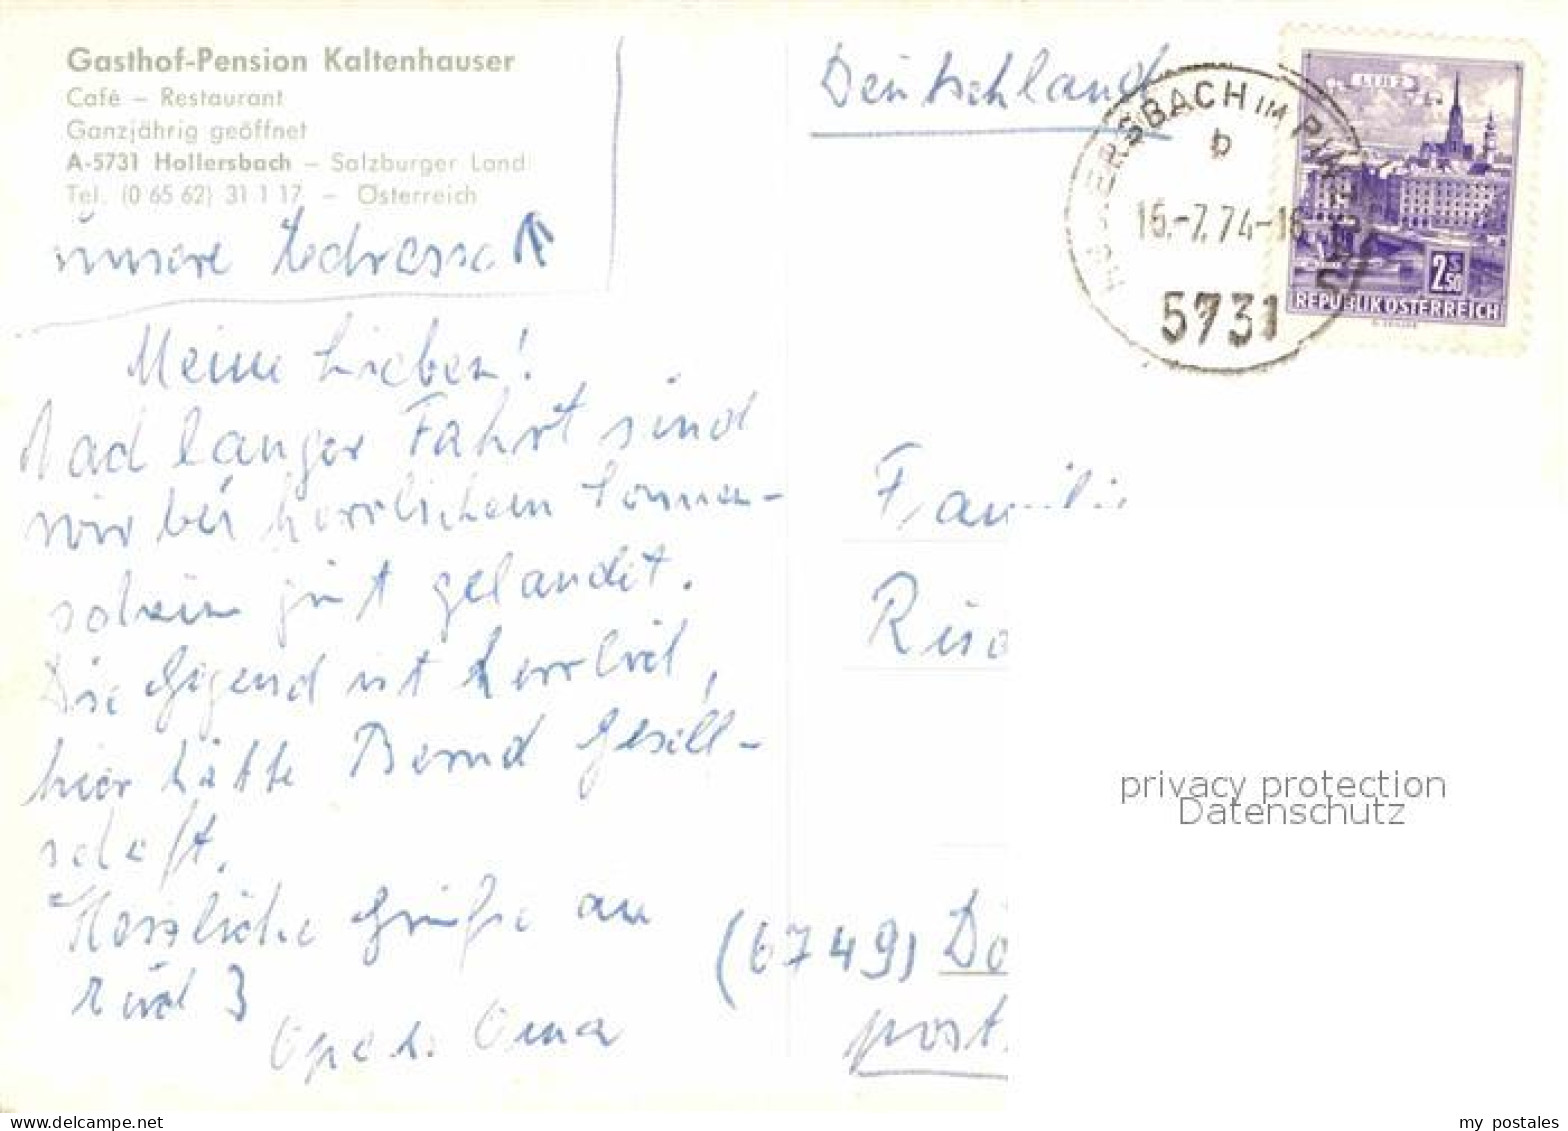 Gasthof-Pension Kaltenhauser
Café – Restaurant
Ganzjährig geöffnet
A-5731 Hollersbach – Salzburger Land
Tel. (0 65 62) 31 1 17 – Österreich
unsere Adresse
Meine Lieben!
Nach langer Fahrt sind
wir bei herrlichem Sonnen-
schein gut gelandet.
Die Gegend ist herrlich,
hier hätte Bernd Gesell-
schaft.
Herzliche Grüße an
Euch 3
Opa u. Oma
Deutschland
ERSBACH IM PIN
b
16.-7.74-16
5731
LINZ
2 S 50
REPUBLIK ÖSTERREICH
Familie
(6749) Dö
post.
privacy protection
Datenschutz
my postales